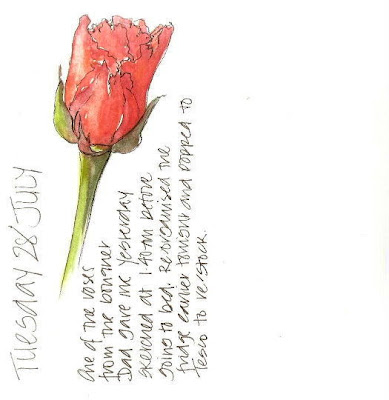 TUESDAY 28 JULY
One of the roses
from the bouquet
Dad gave me yesterday
sketched at 1.40am before
going to bed. Re-organised the
fridge earlier tonight and popped to
Tesco to re-stock.